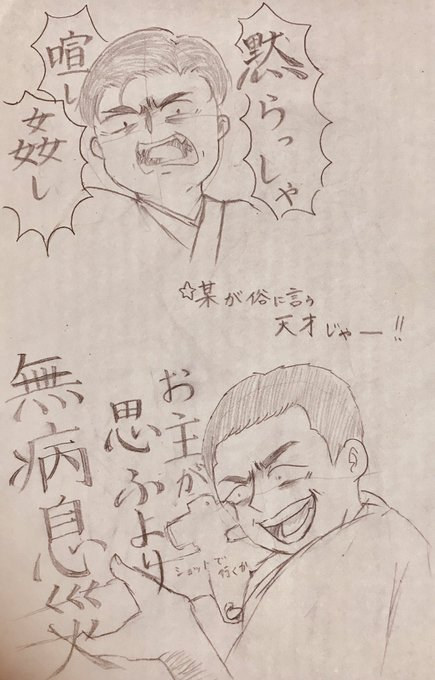 黙らっしゃ
喧し
姦し
☆某が俗に言う
天才じゃー!!
お主が
思ふより
無病息災
行くか